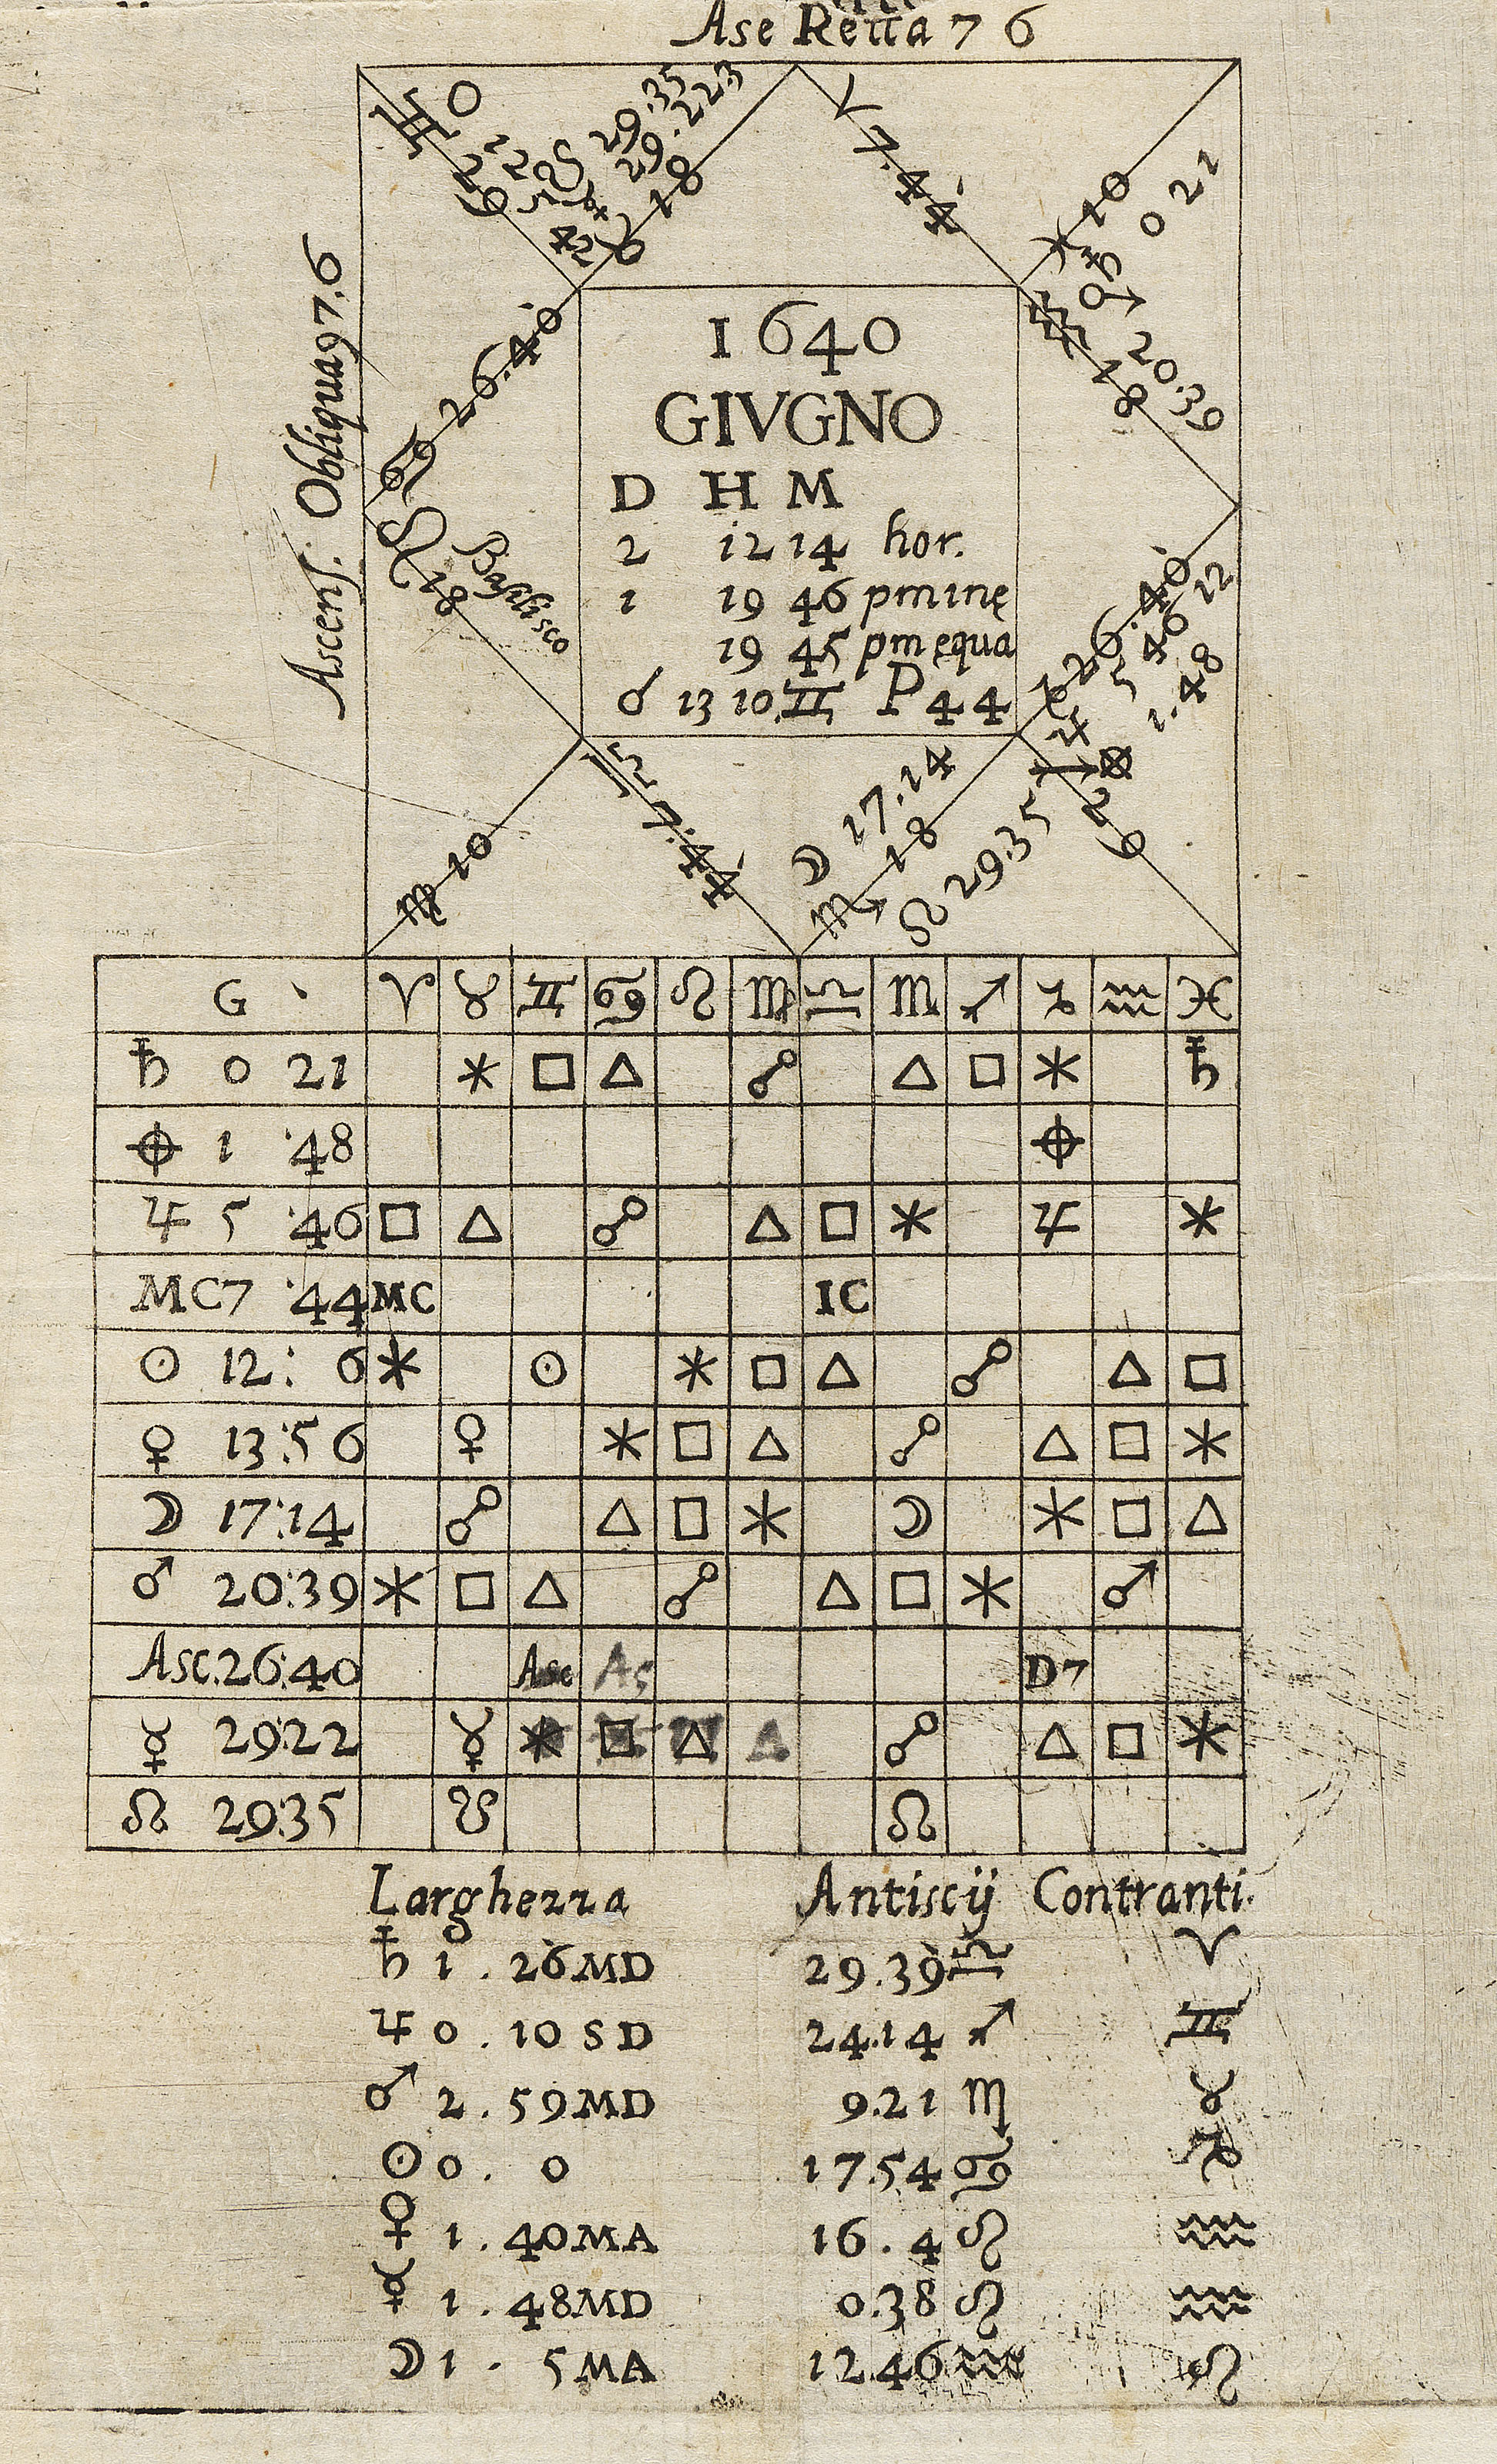 Ase Retta 7 6
♊ 0
22
♉ 29.35
☿ 29.22
♀
♉ 18
♈ 7.44
♓ 10
♄ 0 21
♂ 20.39
♒ 18
Ascens. Obliqua 97.6
♋ 26.40
♌ 18
Basilisco
1640
GIVGNO
D H M
2 12 14 hor.
1 19 46 pminę
19 45 pm ęqua
☌ 13 10.♊ P 44
♑ 26.40
♃ 5 46
⊕ 1.48
♍ 10
♎ 7.44
☽ 17.14
♏ 18
☊ 29.35
♐
G ♈ ♉ ♊ ♋ ♌ ♍ ♎ ♏ ♐ ♑ ♒ ♓
♄ 0 21 ⚹ □ △ ☍ △ □ ⚹ ♄
⊕ 1 :48 ⊕
♃ 5 :46 □ △ ☍ △ □ ⚹ ♃ ⚹
MC 7 :44 MC IC
☉ 12: 6 ⚹ ☉ ⚹ □ △ ☍ △ □
♀ 13:56 ♀ ⚹ □ △ ☍ △ □ ⚹
☽ 17:14 ☍ △ □ ⚹ ☽ ⚹ □ △
♂ 20:39 ⚹ □ △ ☍ △ □ ⚹ ♂
Asc.26:40 Asc As D7
☿ 29:22 ☿ ⚹ □ △ △ ☍ △ □ ⚹
☊ 29:35 ☋ ☊
Larghezza Antiscij Contranti.
♄ 1 . 26 MD 29.39 ♎ ♈
♃ 0 . 10 SD 24.14 ♐ ♊
♂ 2 . 59 MD 9.21 ♏ ♉
☉ 0 . 0 17.54 ♋ ♑
♀ 1 . 40 MA 16 . 4 ♌ ♒
☿ 1 . 48 MD 0.38 ♌ ♒
☽ 1 . 5 MA 12.46 ♒ ♌